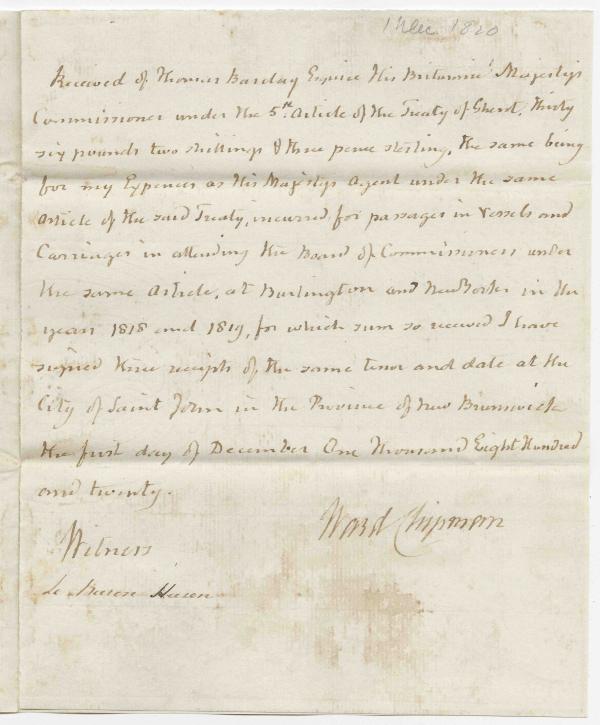 1 Dec 1820
Received of Thomas Barclay Esquire His Britannic Majestys
Commissioner under the 5th. Article of the Treaty of Ghent, thirty
six pounds two shillings & three pence sterling, the same being
for my Expences as His Majestys Agent under the same
Article of the said Treaty, incurred for passages in Vessels and
Carriages in attending the Board of Commissioners under
the same Article, at Burlington and New York in the
years 1818 and 1819, for which sum so received I have
signed three receipts of the same tenor and date at the
City of Saint John in the Province of New Brunswick
the first day of December One thousand Eight Hundred
and twenty.
Ward Chipman
Witness
Le Baron Hazen